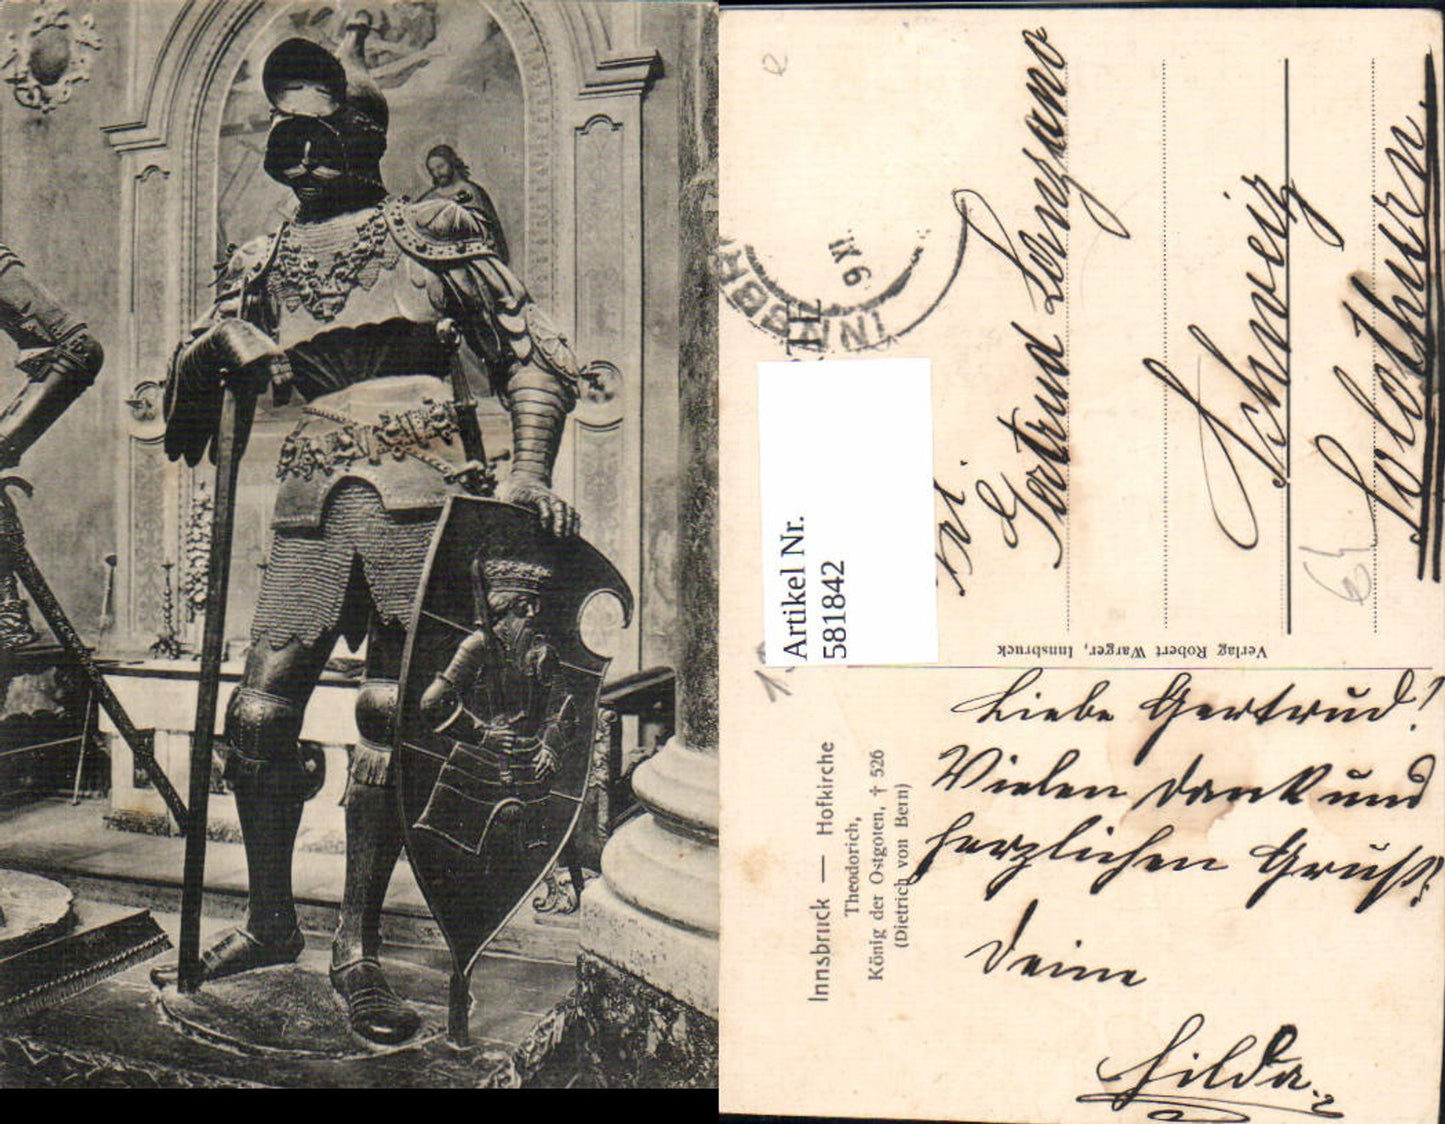 Artikel Nr.
581842
INNSBR
9 XI
Frl.
Gertrud
Schweiz
Solothurn.
Verlag Robert Warger, Innsbruck
Innsbruck — Hofkirche
Theodorich,
König der Ostgoten, † 526
(Dietrich von Bern)
Liebe Gertrud!
Vielen Dank und
herzlichen Gruß.
Deine
Hilda.